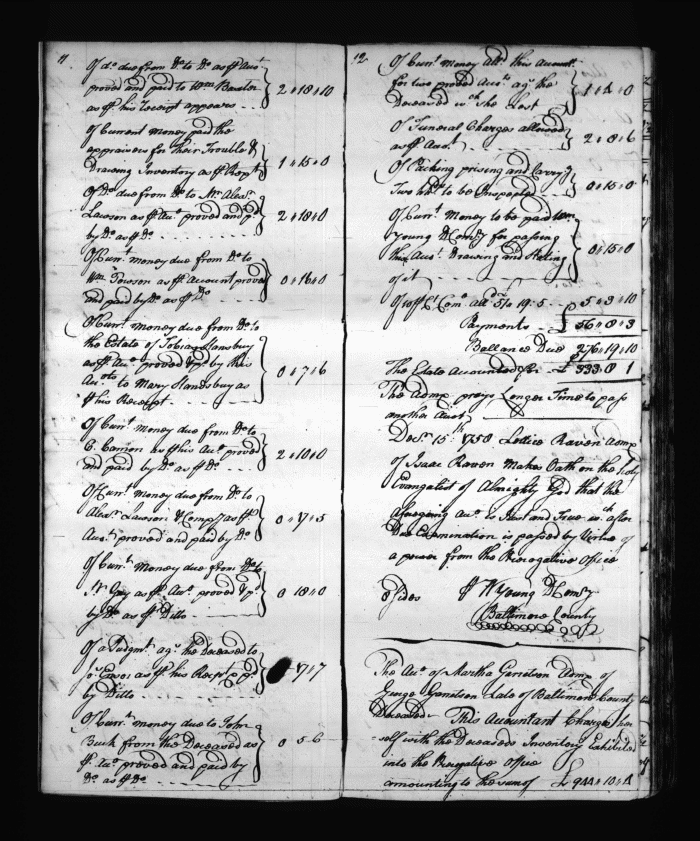 11
Of do due from Do to Do as pr Accot
proved and paid to Wm Baxter
as pr his Receipt appears 2 " 18 " 10
Of Current money paid the
appraisers for their Trouble &
Drawing Inventory as pr Rept 1 " 15 " 0
Of Do due from Do to Mr Alexr
Lawson as pr Acct proved and pd
by Do as pr Do 2 " 18 " 0
Of Curt money due from Do to
Wm Towson as pr Account proved
and paid by Do as pr Do 0 " 16 " 0
Of Curt money due from Do to
the Estate of Tobias Stansbury
as pr Acct proved & pd by this
Accots to Mary Stansbury as
pr his Receipt 0 " 7 " 6
Of Curt money due from Do to
as pr this Acct proved
and paid by Do as pr Do 2 " 10 " 0
Of Curt money due from Do to
Alexr Lawson & Compy as pr
Acct proved and paid by Do 0 " 17 " 5
Of Curt Money due from Do to
as pr Acct proved & pd
by Do as pr Ditto 0 18 " 0
Of a Judgmt agt the Deceased to
as pr his Receipt & pd
by Ditto " 17 " 7
Of Curt money due to John
Buck from the Deceased as
pr Acct proved and paid by
Do as pr Do 0 5 " 6
12
Of Curt Money alld this Accountt
for two proved Accts agt the
Deceased wch She Lost 1 " 4 " 0
Of Funeral Charges allowed
as pr Acct 2 " 8 " 6
Of Packing prising and
Two Hhds to be Inspected 0 " 15 " 0
Of Curt Money to be paid
Young D Comry for passing
this Acct Drawing and Stating
of it 0 " 15 " 0
Of 10 pr Ct Comn alld on 51 " 19 : 5 5 " 3 " 10
Payments £ 56 " 8 " 3
Ballance Due 276 " 19 " 10
The Estate Accounted for £ 333 " 8 1
The Admx prays Longer Time to pass
another Acct
Decr 15th 1750 Lettice Raven admx
of Isaac Raven makes Oath on the holy
Evangelist of Almighty God that the
aforegoing Acct is Just and True wch after
Due Examination is passed by Virtue of
a power from the Prerogative Office
8 Sides pr W Young D Comry
Baltimore County
The Acct of Martha Garretson Admx of
George Garretson Late of Baltimore County
Deceased This Accountant Charges her
self with the Deceaseds Inventory Exhibited
into the Prerogative Office
amounting to the sum of £ 944 " 10 " 4